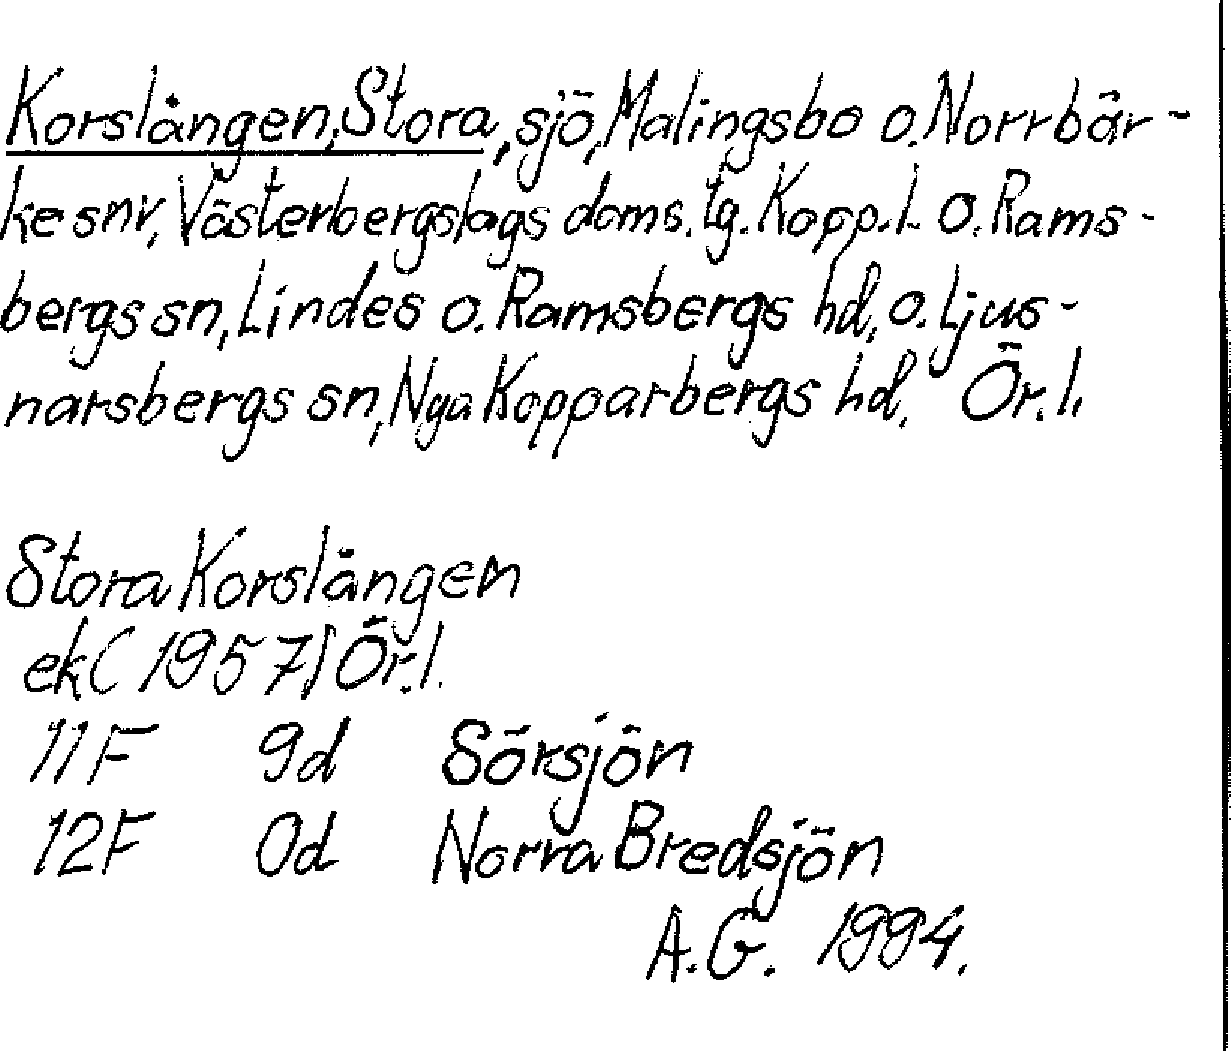 Korslången, Stora, sjö, Malingsbo o. Norrbär-
ke snr, Västerbergslags doms. tg. Kopp. l. O. Rams-
bergs sn, Lindes o. Ramsbergs hd, o. Ljus-
narsbergs sn, Nya Kopparbergs hd, Ör. l.
Stora Korslången
ek (1957) Ör. l.
11F 9d Sörsjön
12F 0d Norra Bredsjön
A.G. 1994.